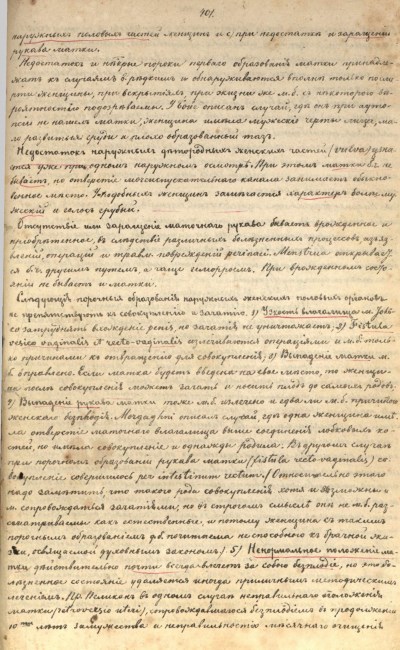 101.
наружныхъ половыхъ частей женщинъ и с) при недостаткѣ и заращеніи
рукава матки.
Недостатокъ и нѣкрые пороки перваго образованія матки принадле-
жатъ къ случаямъ б. рѣдкимъ и обнаруживаются вполнѣ только послѣ
смерти женщины, при вскрытіяхъ, при жизни же м. б. съ нѣкоторою вѣ-
роятностію подозрѣваемы. описанъ случай, гдѣ онъ при аутоп-
сіи не нашелъ матки; женщина имѣла мужскіе черты лица, ма-
ло развитыя груди и плохо образованный тазъ.
Недостатокъ наружныхъ дѣтородныхъ женскихъ частей (vulva) узна-
ется уже при одномъ наружномъ осмотрѣ. При этомъ матки б. не
бываетъ, но отверстіе мочеиспускательнаго канала занимаетъ обыкно-
венное мѣсто. У подобныхъ женщинъ замѣчается характеръ болѣе му-
жескій и голосъ грубый.
Отсутствіе или заращеніе маточнаго рукава бываетъ врожденное и
пріобрѣтенное, въ слѣдствіе различныхъ болѣзненныхъ процессовъ, изъяз-
вленій, операціи и травм. поврежденій perinaei. Menstrua открывает-
ся б. ч. другимъ путемъ, а чаще гемороемъ. При врожденномъ состо-
яніи не бываетъ и матки.
Слѣдующія порочныя образованія наружныхъ женскихъ половыхъ органовъ
не препятствуютъ къ совокупленію и зачатію. 1) Узкость влагалища м. толь-
ко затруднять вхожденіе penis, но зачатія не уничтожаетъ. 2) Fistula
vesico vaginalis et recto-vaginalis излечиваются операціями и м. б. толь-
ко причинами къ отвращенію для совокупленія; 3) Выпаденіе матки м.
б. вправлено. Если матка будетъ введена на свое мѣсто, то женщи-
на послѣ совокупленія можетъ зачать и носить плодъ до самыхъ родовъ.
4) Выпаденіе рукава матки тоже м. б. излечено и едва ли м. б. причиною
женскаго безплодія. описалъ случай, гдѣ одна женщина имѣ-
ла отверстіе маточнаго влагалища выше соединенія лобковыхъ ко-
стей, но имѣла совокупленіе и однажды родила. Въ другомъ случаѣ
при порочномъ образованіи рукава матки (fistula recto-vaginalis) со-
вокупленіе совершилось per intestinum rectum. (Относительно этого
надо замѣтить, что такого рода совокупленія хотя и возможны и
м. сопровождаться зачатіями, но въ строгомъ смыслѣ они не м. б. раз-
сматриваемы какъ естественные, и потому женщина съ такимъ
порочнымъ образованіемъ д. б. почитаема не способною къ брачной жи-
зни, освящаемой духовнымъ закономъ.) 5) Ненормальное положеніе ма-
тки дѣйствительно почти всегда влечетъ за собою безплодіе, но это бо-
лѣзненное состояніе удаляется иногда приличнымъ методическимъ
леченіемъ. Пр. Пеликанъ въ одномъ случаѣ неправильнаго положенія
матки (retroversio uteri), сопровождавшагося безплодіемъ въ продолженіи
10 лѣтъ замужества и неправильностію мѣсячнаго очищенія